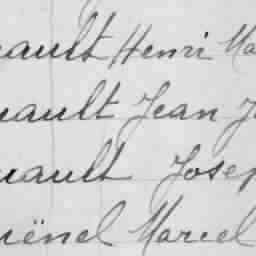 uault Henri Ma
uault Jean J
uault Josep
uënel Marcel